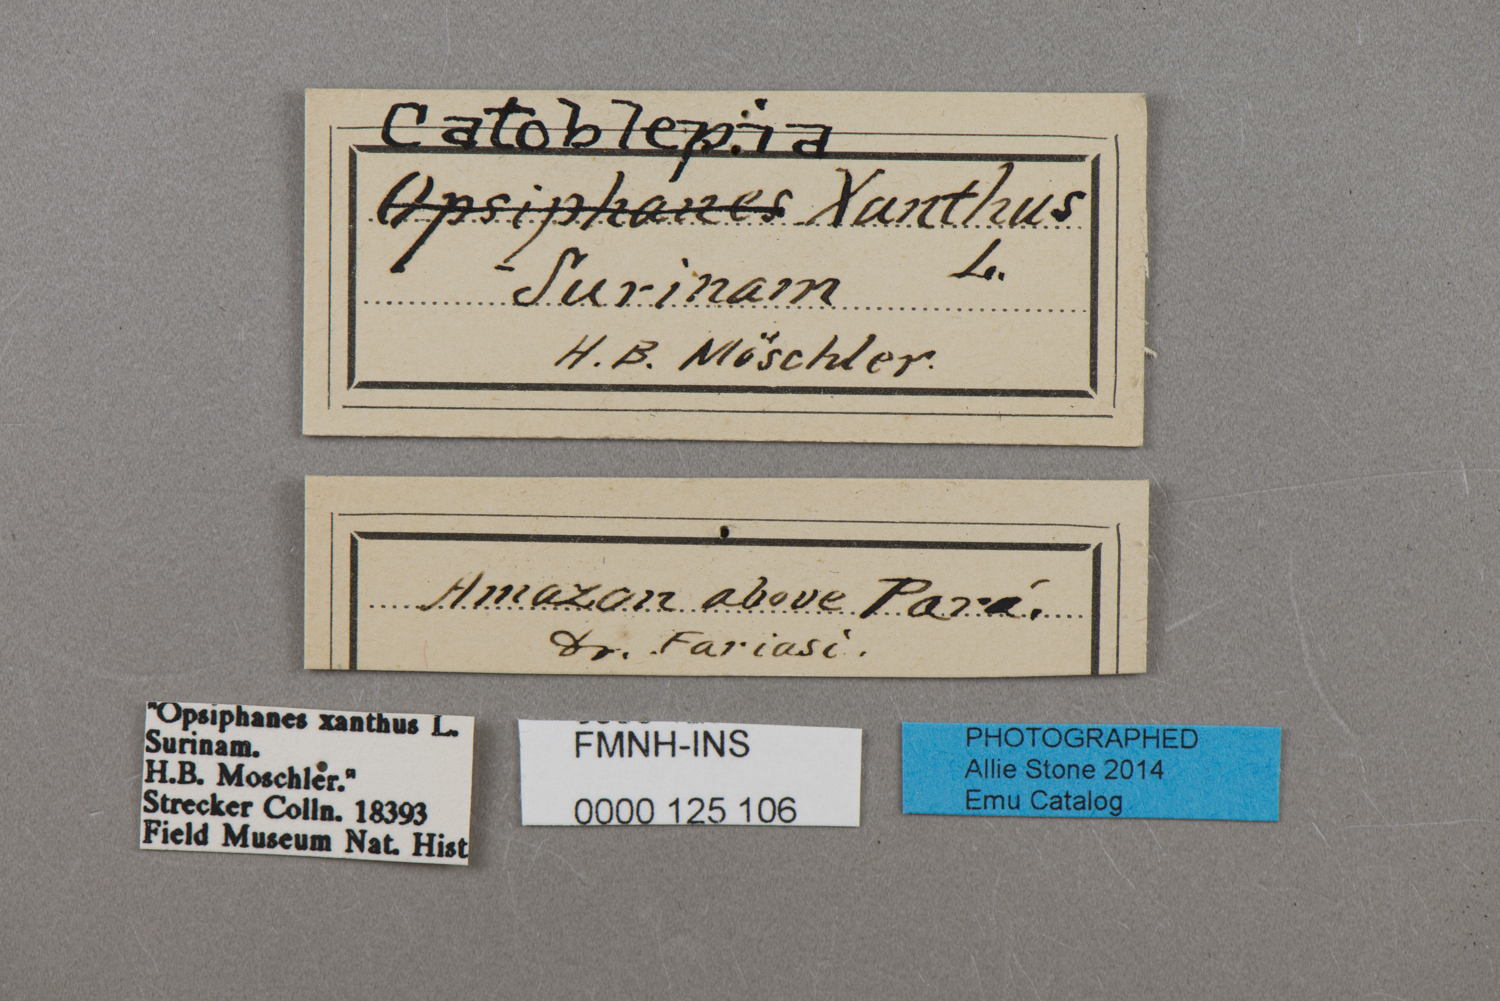 Catoblepia
Opsiphanes Xanthus
L.
Surinam
H. B. Möschler.
Amazon above Pará.
Dr. Fariasi.
"Opsiphanes xanthus L.
Surinam.
H.B. Moschler."
Strecker Colln. 18393
Field Museum Nat. Hist
FMNH-INS
0000 125 106
PHOTOGRAPHED
Allie Stone 2014
Emu Catalog